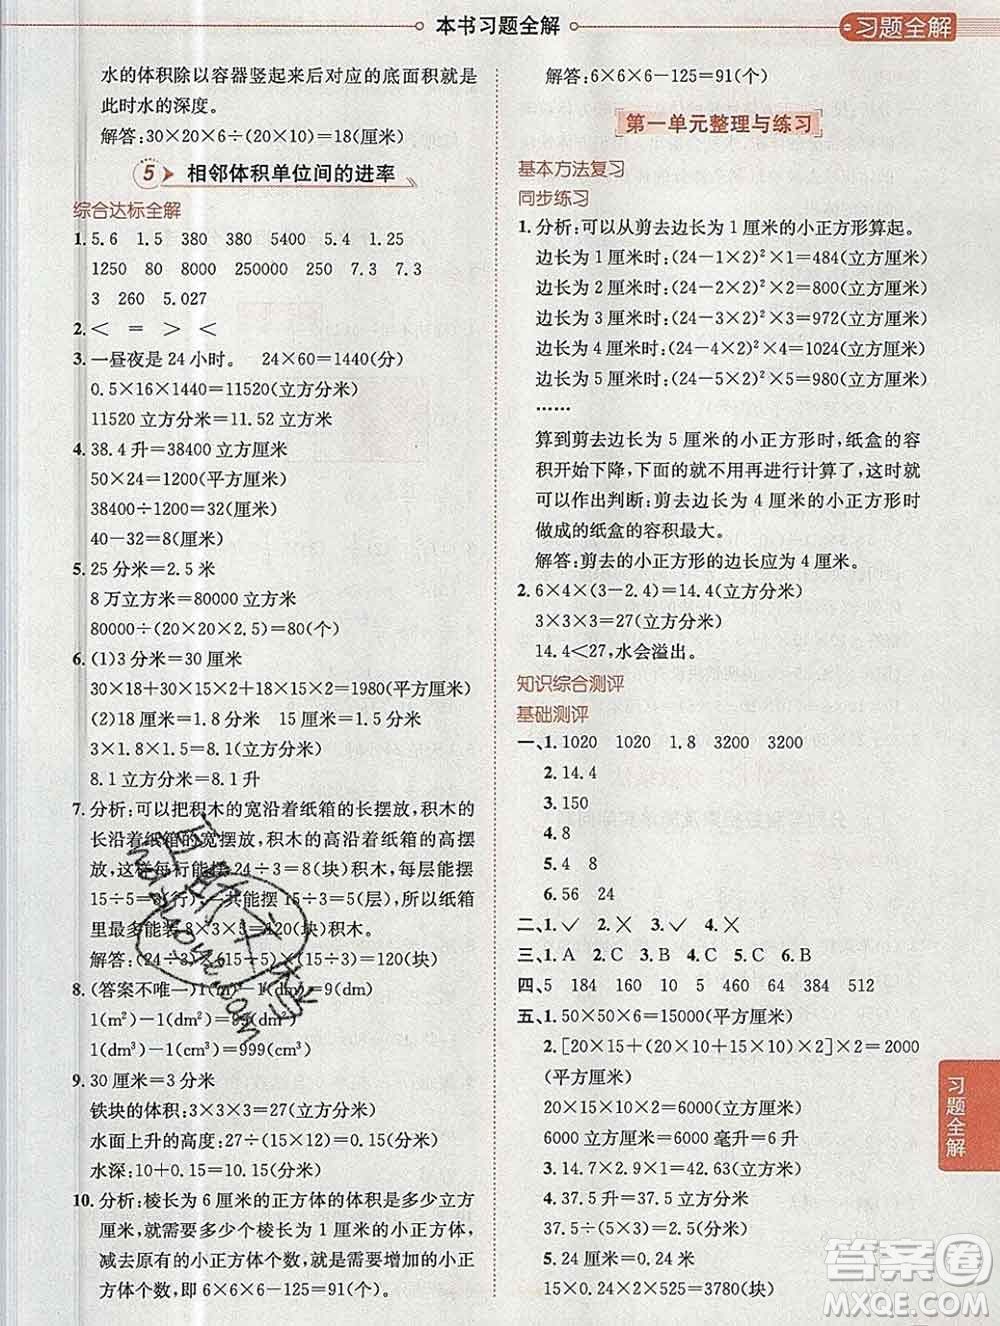 本书习题全解
习题全解
水的体积除以容器竖起来后对应的底面积就是
此时水的深度。
解答:30×20×6÷(20×10)=18(厘米)
5 相邻体积单位间的进率
综合达标全解
1. 5.6 1.5 380 380 5400 5.4 1.25
1250 80 8000 250000 250 7.3 7.3
3 260 5.027
2. < = > <
3. 一昼夜是24小时。 24×60=1440(分)
0.5×16×1440=11520(立方分米)
11520立方分米=11.52立方米
4. 38.4升=38400立方厘米
50×24=1200(平方厘米)
38400÷1200=32(厘米)
40-32=8(厘米)
5. 25分米=2.5米
8万立方米=80000立方米
80000÷(20×20×2.5)=80(个)
6. (1)3分米=30厘米
30×18+30×15×2+18×15×2=1980(平方厘米)
(2)18厘米=1.8分米 15厘米=1.5分米
3×1.8×1.5=8.1(立方分米)
8.1立方分米=8.1升
7. 分析:可以把积木的宽沿着纸箱的长摆放,积木的
长沿着纸箱的宽摆放,积木的高沿着纸箱的高摆
放,这样每行能摆24÷3=8(块)积木,每层能摆
15÷5=3(行),一共能摆15÷3=5(层),所以纸箱
里最多能装8×3×5=120(块)积木。
解答:(24÷3)×(15÷5)×(15÷3)=120(块)
8. (答案不唯一)1(m)-1(dm)=9(dm)
1(m²)-1(dm²)=99(dm²)
1(dm³)-1(cm³)=999(cm³)
9. 30厘米=3分米
铁块的体积:3×3×3=27(立方分米)
水面上升的高度:27÷(12×5)=0.45(分米)
水深:10+0.45=10.45(分米)
10. 分析:棱长为6厘米的正方体的体积是多少立方
厘米,就需要多少个棱长为1厘米的小正方体,
减去原有的小正方体个数,就是要增加的小正
方体个数,即6×6×6-125=91(个)。
解答:6×6×6-125=91(个)
第一单元整理与练习
基本方法复习
同步练习
1. 分析:可以从剪去边长为1厘米的小正方形算起。
边长为1厘米时:(24-1×2)²×1=484(立方厘米)
边长为2厘米时:(24-2×2)²×2=800(立方厘米)
边长为3厘米时:(24-3×2)²×3=972(立方厘米)
边长为4厘米时:(24-4×2)²×4=1024(立方厘米)
边长为5厘米时:(24-5×2)²×5=980(立方厘米)
……
算到剪去边长为5厘米的小正方形时,纸盒的容
积开始下降,下面的就不用再进行计算了,这时就
可以作出判断:剪去边长为4厘米的小正方形时
做成的纸盒的容积最大。
解答:剪去的小正方形的边长应为4厘米。
2. 6×4×(3-2.4)=14.4(立方厘米)
3×3×3=27(立方厘米)
14.4<27,水会溢出。
知识综合测评
基础测评
一、1. 1020 1020 1.8 3200 3200
2. 14.4
3. 150
4. 8
5. 4 8
6. 56 24
二、1. ✓ 2. × 3. ✓ 4. ×
三、1. A 2. C 3. B 4. C 5. B
四、5 184 160 10 5 460 64 384 512
五、1. 50×50×6=15000(平方厘米)
2. [20×15+(20×10+15×10)×2]×2=2000
(平方厘米)
20×15×10×2=6000(立方厘米)
6000立方厘米=6000毫升=6升
3. 14.4÷(3×3)=1.6(分米)
4. 37.5升=37.5立方分米
37.5÷(5×3)=2.5(分米)
5. 24厘米=0.24米
15×0.24×2×525=3780(块)
习题全解
答案圈
MXQE.COM